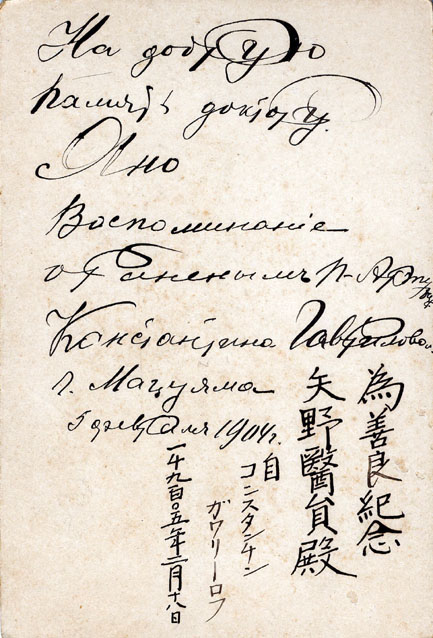 На добрую
память доктору.
Яно
Воспоминаніе
от Раненымъ
Константина Гаврилова
г. Мацуяма
5 февраля 1904г.
為善良紀念
矢野醫員殿
自
コンスタンチン
ガウリーロフ
一千九百〇五年二月十八日